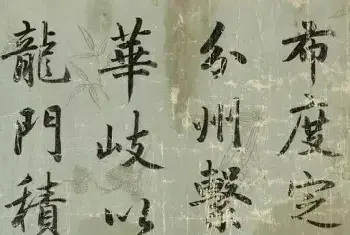 布度定
分州繫
華岐以
龍門積